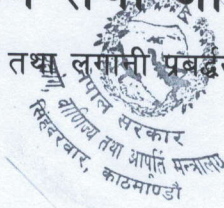 तथा लगानी प्रबर्द्ध
नेपाल सरकार
वाणिज्य तथा आपूर्ति मन्त्रालय
सिंहदरबार, काठमाण्डौ